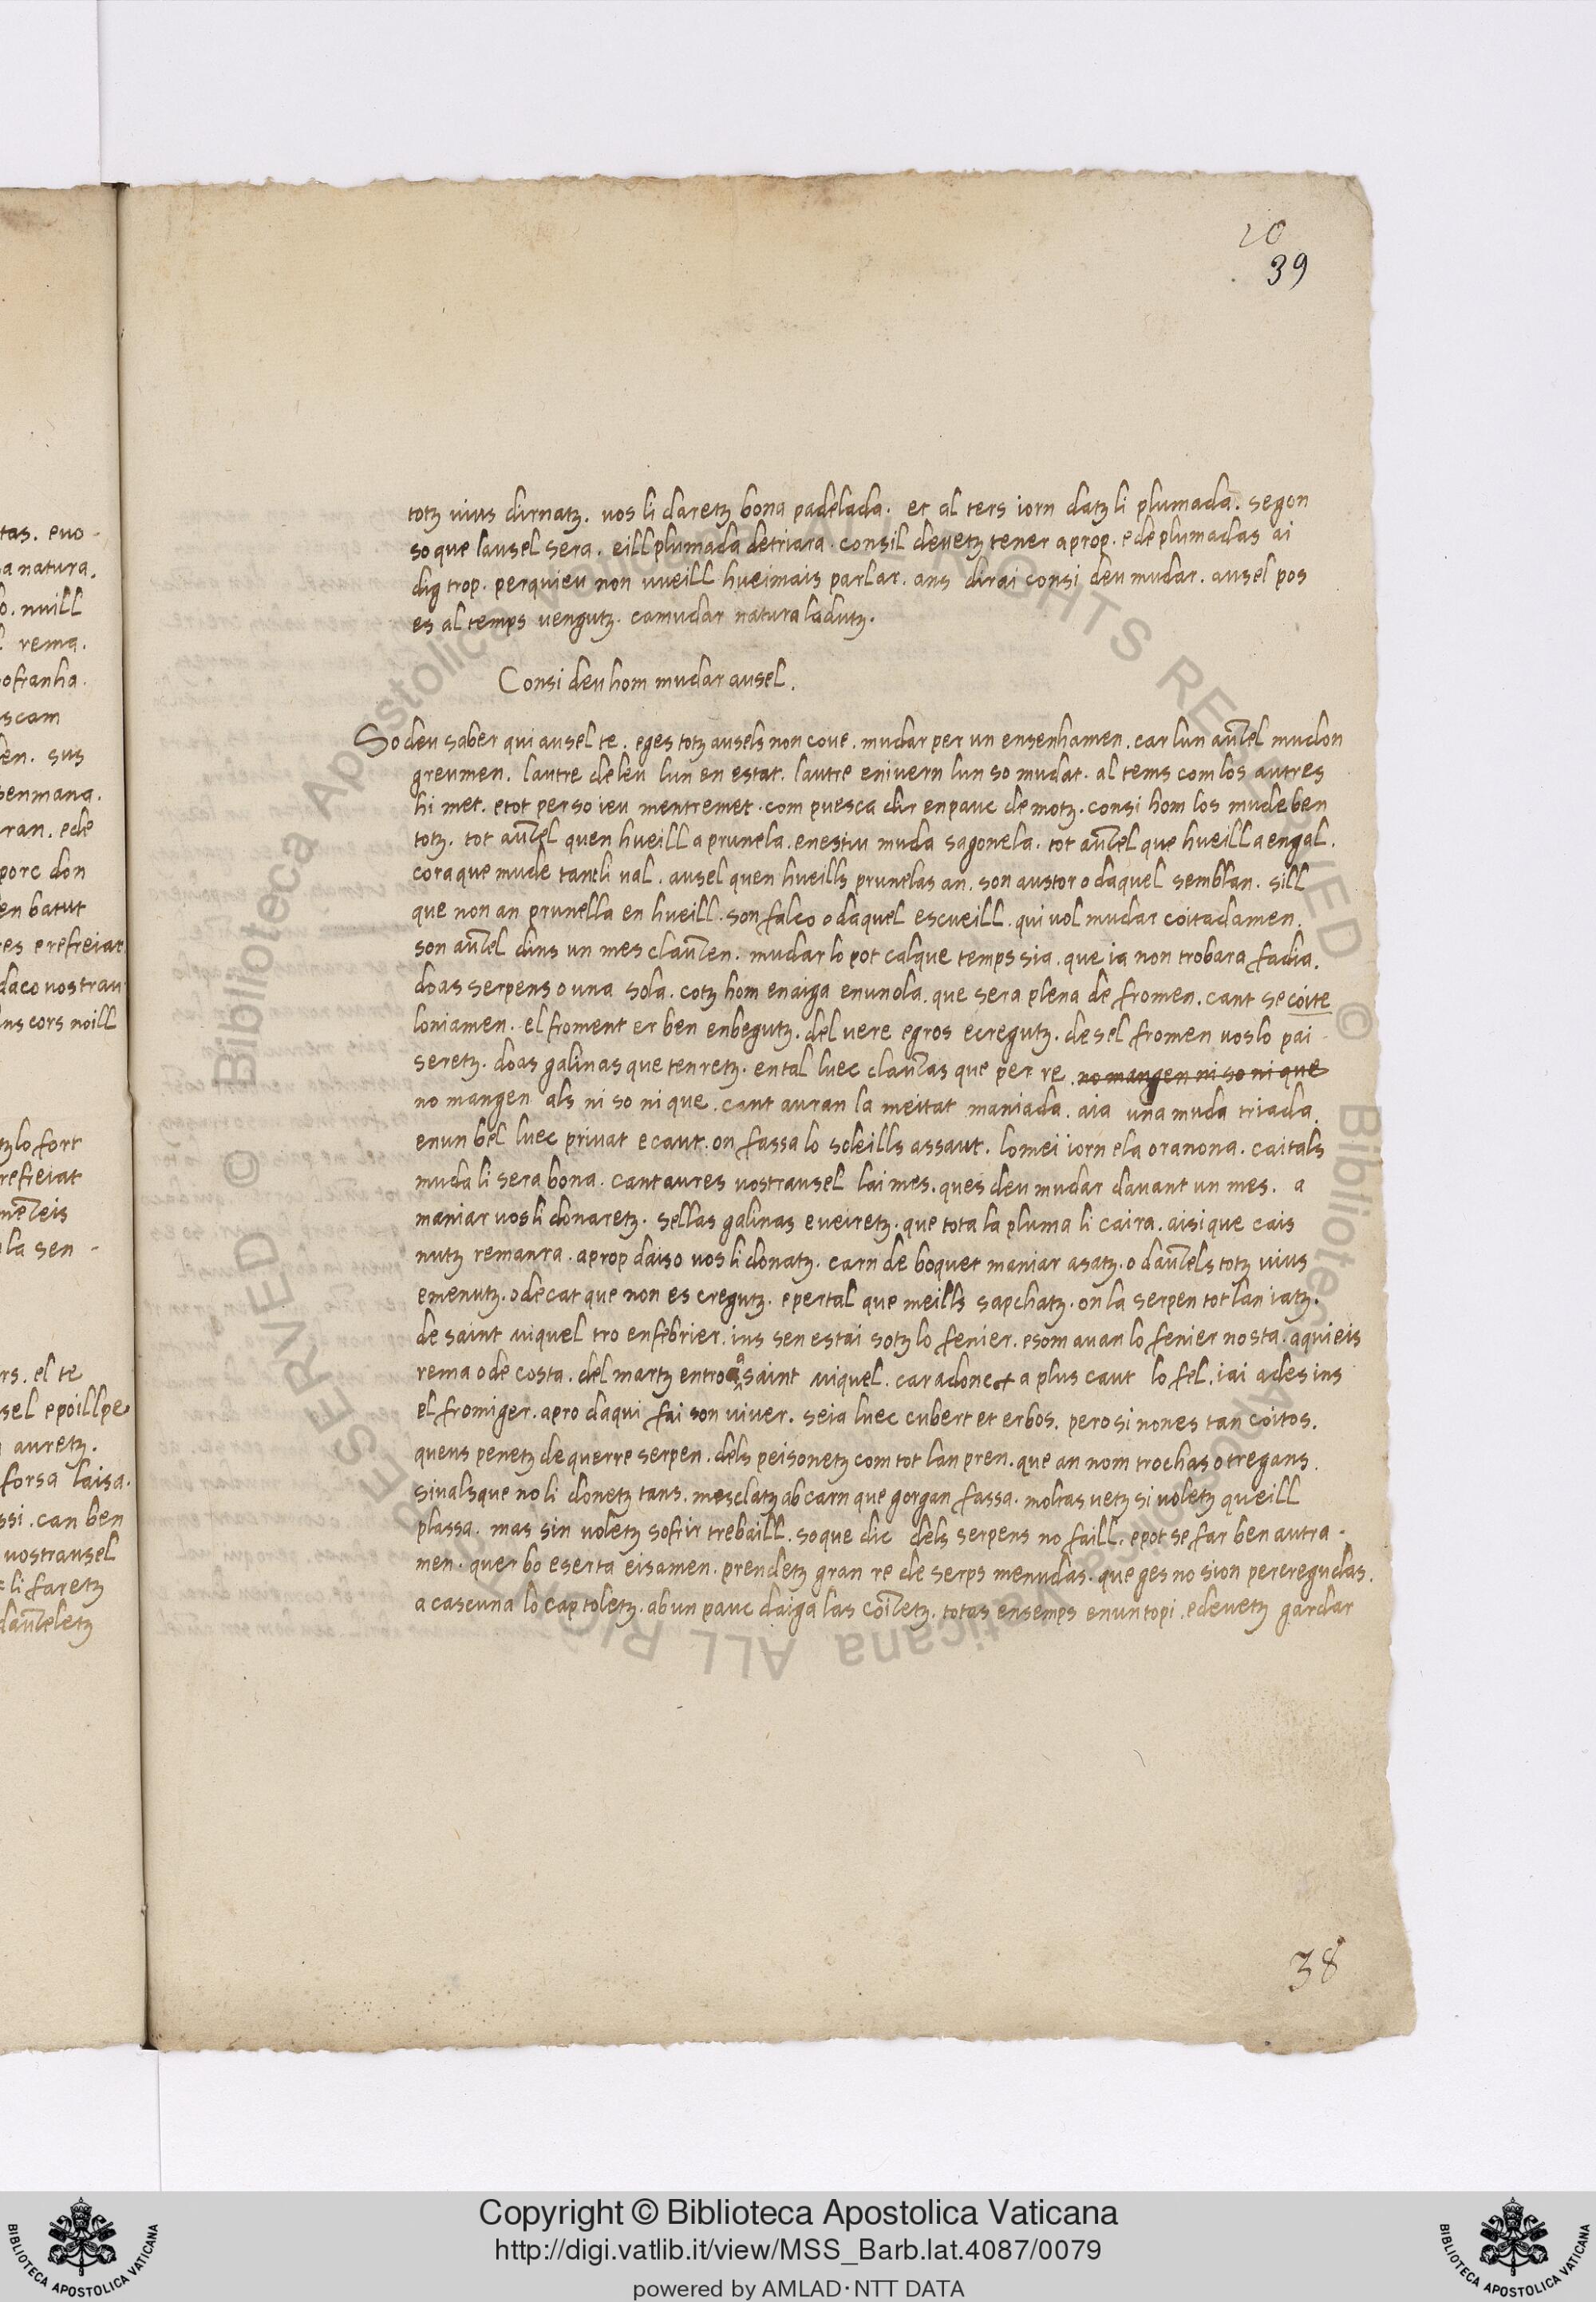 20
39
totz uius dirnatz. uos li daretz bona padelada. et al ters iorn datz li plumada. segon
so que lausel sera. eill plumada detriara. consil deuetz tener aprop. e de plumadas ai
dig trop. perquieu non uueill hueimais parlar. ans dirai consi deu mudar. ausel pos
es al temps uengutz. camudar natura ladutz.
Consi deu hom mudar ausel.
So deu saber qui ausel te. eges totz ausels non coue. mudar per un ensenhamen. car lun autel mudon
greumen. lautre de leu lun en estat. lautre en iuern lun so mudat. al tems com los autres
hi met. etot per so ieu mentremet. com puesca dir en pauc de motz. consi hom los mude ben
totz. tot autel quen hueill a prunela. en estiu muda sa gonela. tot autel que hueill a engal.
cora que mude tantli ual. ausel quen hueills prunelas an. son austor o daquel semblan. sill
que non an prunella en hueill. son falco o daquel escueill. qui uol mudar coitadamen.
son autel dins un mes clauten. mudar lo pot calque temps sia. que ia non trobara fadia.
doas serpens o una sola. cotz hom en aiga en un ola. que sera plena de fromen. cant se coite
loniamen. el froment er ben enbegutz. del uere egros ecregutz. de sel fromen uos lo pai
seretz. doas galinas que tenretz. en tal luec clautas que per re. no mangen ni so ni que
no mangen als ni so ni que. cant auran la meitat maniada. aia una muda triada.
en un bel luec priuat e caut. on fassa lo soleills assaut. lo mei iorn e la ora nona. caitals
muda li sera bona. cant aures uostrausel lai mes. ques deu mudar dauant un mes. a
maniar uos li donaretz. sellas galinas e ueiretz. que tota la pluma li caira. aisi que cais
nutz remanra. aprop daiso uos li donatz. carn de boquet maniar asatz. o dautels totz uius
emenutz. o de cat que non es cregutz. e per tal que meills sapchatz. on la serpen tot lan iatz.
de saint miquel tro en febrier. ins sen estai sotz lo fenier. esom auan lo fenier no sta. aqui eis
rema o de costa. del martz entro a saint miquel. car adoncx a plus caut lo fel. iai ades ins
el fromiger. apro daqui fai son uiuer. se ia luec cubert et erbos. pero si non es tan coitos.
quens penetz de querre serpen. dels peisonetz com tot lan pren. que an nom trochas o tregans.
siuals que no li donetz tans. mesclatz ab carn que gorgan fassa. moltas uetz si uoletz queill
plassa. mas sin uoletz sofrir trebaill. so que dic dels serpens no faill. e pot se far ben autra
men. quer bo eserta eisamen. prendetz gran re de serps menudas. que ges no sion percregudas.
a cascuna lo cap toletz. ab un pauc daiga las coiletz. totas ensemps en un topi. e deuetz gardar
38
tas. euo
a natura.
nuill
rema.
ofranha.
scam
en. sus
enmana.
ran. ede
porc don
en batut
res e refreiat
daco uostrau
ns cors noill
tz lo fort
refreiat
la sen
rs. el te
sel e poill pe
auretz.
forsa laisa.
ssi. can ben
uostrausel
li faretz
dauteletz
Copyright © Biblioteca Apostolica Vaticana
http://digi.vatlib.it/view/MSS_Barb.lat.4087/0079
powered by AMLAD·NTT DATA
BIBLIOTECA APOSTOLICA VATICANA
BIBLIOTECA APOSTOLICA VATICANA
© Biblioteca Apostolica Vaticana ALL RIGHTS RESERVED